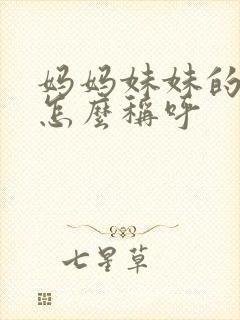 妈妈妹妹的
怎麼稱呼
七星草